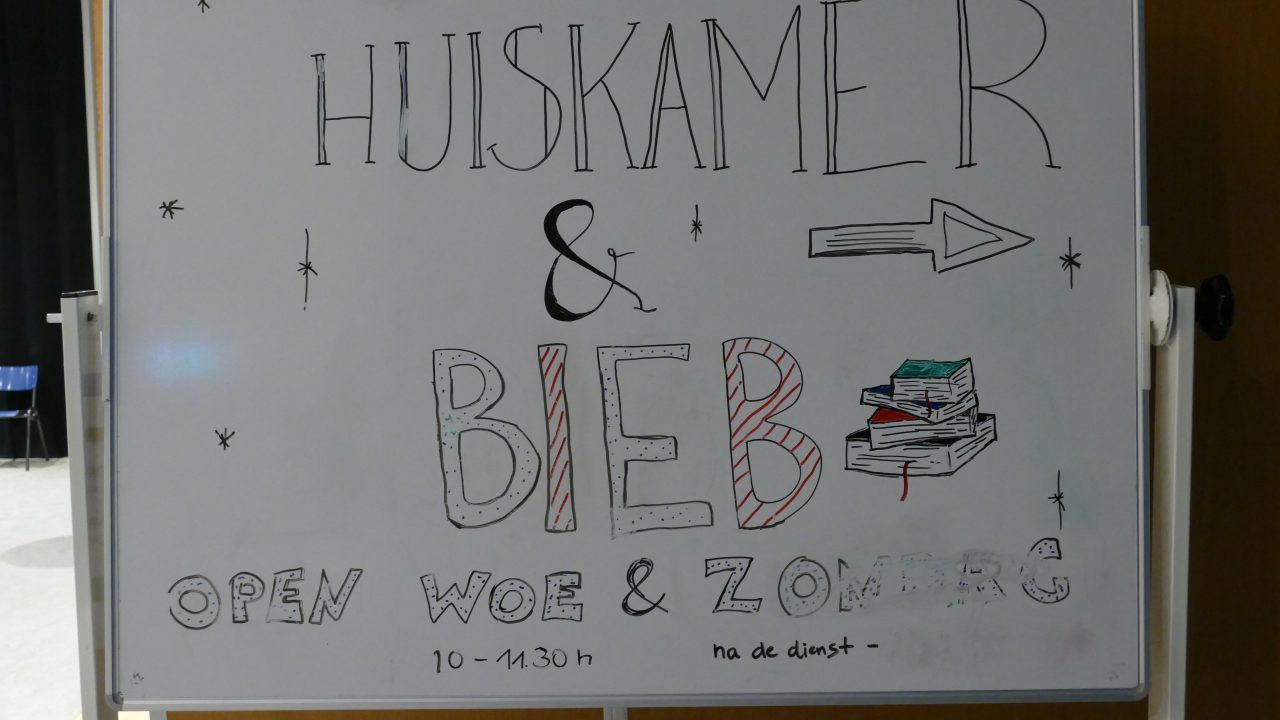 HUISKAMER
&
BIEB
OPEN WOE & ZONDAG
10 - 11.30 h
na de dienst -